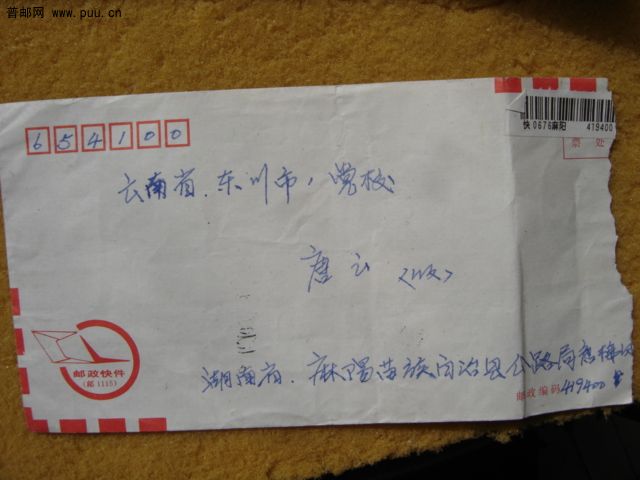 普邮网 www.puu.cn
654100
快 0676麻阳 419400
票 处
云南省.东川市,党校
唐云<收>
邮政快件
(邮1115)
湖南省.麻阳苗族自治县公路局
邮政编码419400